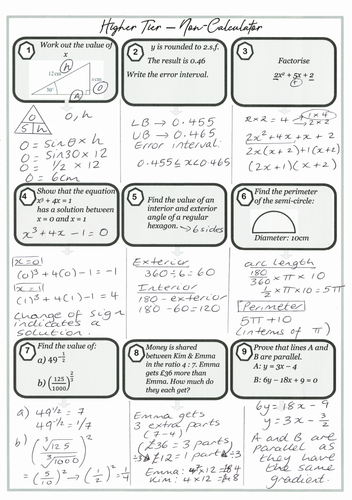 Higher Tier – Non-Calculator
1
Work out the value of
x
12cm
x cm
30°
H
O
A
O
S H
O, H
O = sinθ × h
O = sin30 × 12
O = ½ × 12
O = 6cm
2
y is rounded to 2.s.f.
The result is 0.46
Write the error interval.
LB → 0.455
UB → 0.465
Error interval:
0.455 ≤ x < 0.465
3
Factorise
2x² + 5x + 2
2 × 2 = 4
1 × 4
2x² + 4x + x + 2
2x(x + 2) + 1(x + 2)
(2x + 1)(x + 2)
4
Show that the equation
x³ + 4x = 1
has a solution between
x = 0 and x = 1
x³ + 4x - 1 = 0
x = 0
(0)³ + 4(0) - 1 = -1
x = 1
(1)³ + 4(1) - 1 = 4
change of sign
indicates a
solution.
5
Find the value of an
interior and exterior
angle of a regular
hexagon.
→ 6 sides
Exterior
360 ÷ 6 = 60
Interior
180 - exterior
180 - 60 = 120
6
Find the perimeter
of the semi-circle:
Diameter: 10cm
arc length
180/360 × π × 10
½ × π × 10 = 5π
Perimeter
5π + 10
(in terms of π)
7
Find the value of:
a) 49^-½
b) (125/1000)^⅔
a) 49^½ = 7
49^-½ = 1/7
b) (³√125 / ³√1000)²
= (5/10)² → (1/2)² = 1/4
8
Money is shared
between Kim & Emma
in the ratio 4 : 7. Emma
gets £36 more than
Emma. How much do
they each get?
Emma gets
3 extra parts
(7-4)
£36 = 3 parts
£12 = 1 part
÷3
÷3
9
Prove that lines A and B
are parallel.
A: y = 3x – 4
B: 6y – 18x + 9 = 0
6y = 18x - 9
y = 3x - 3/2
A and B are
parallel as
they have
the same
gradient.